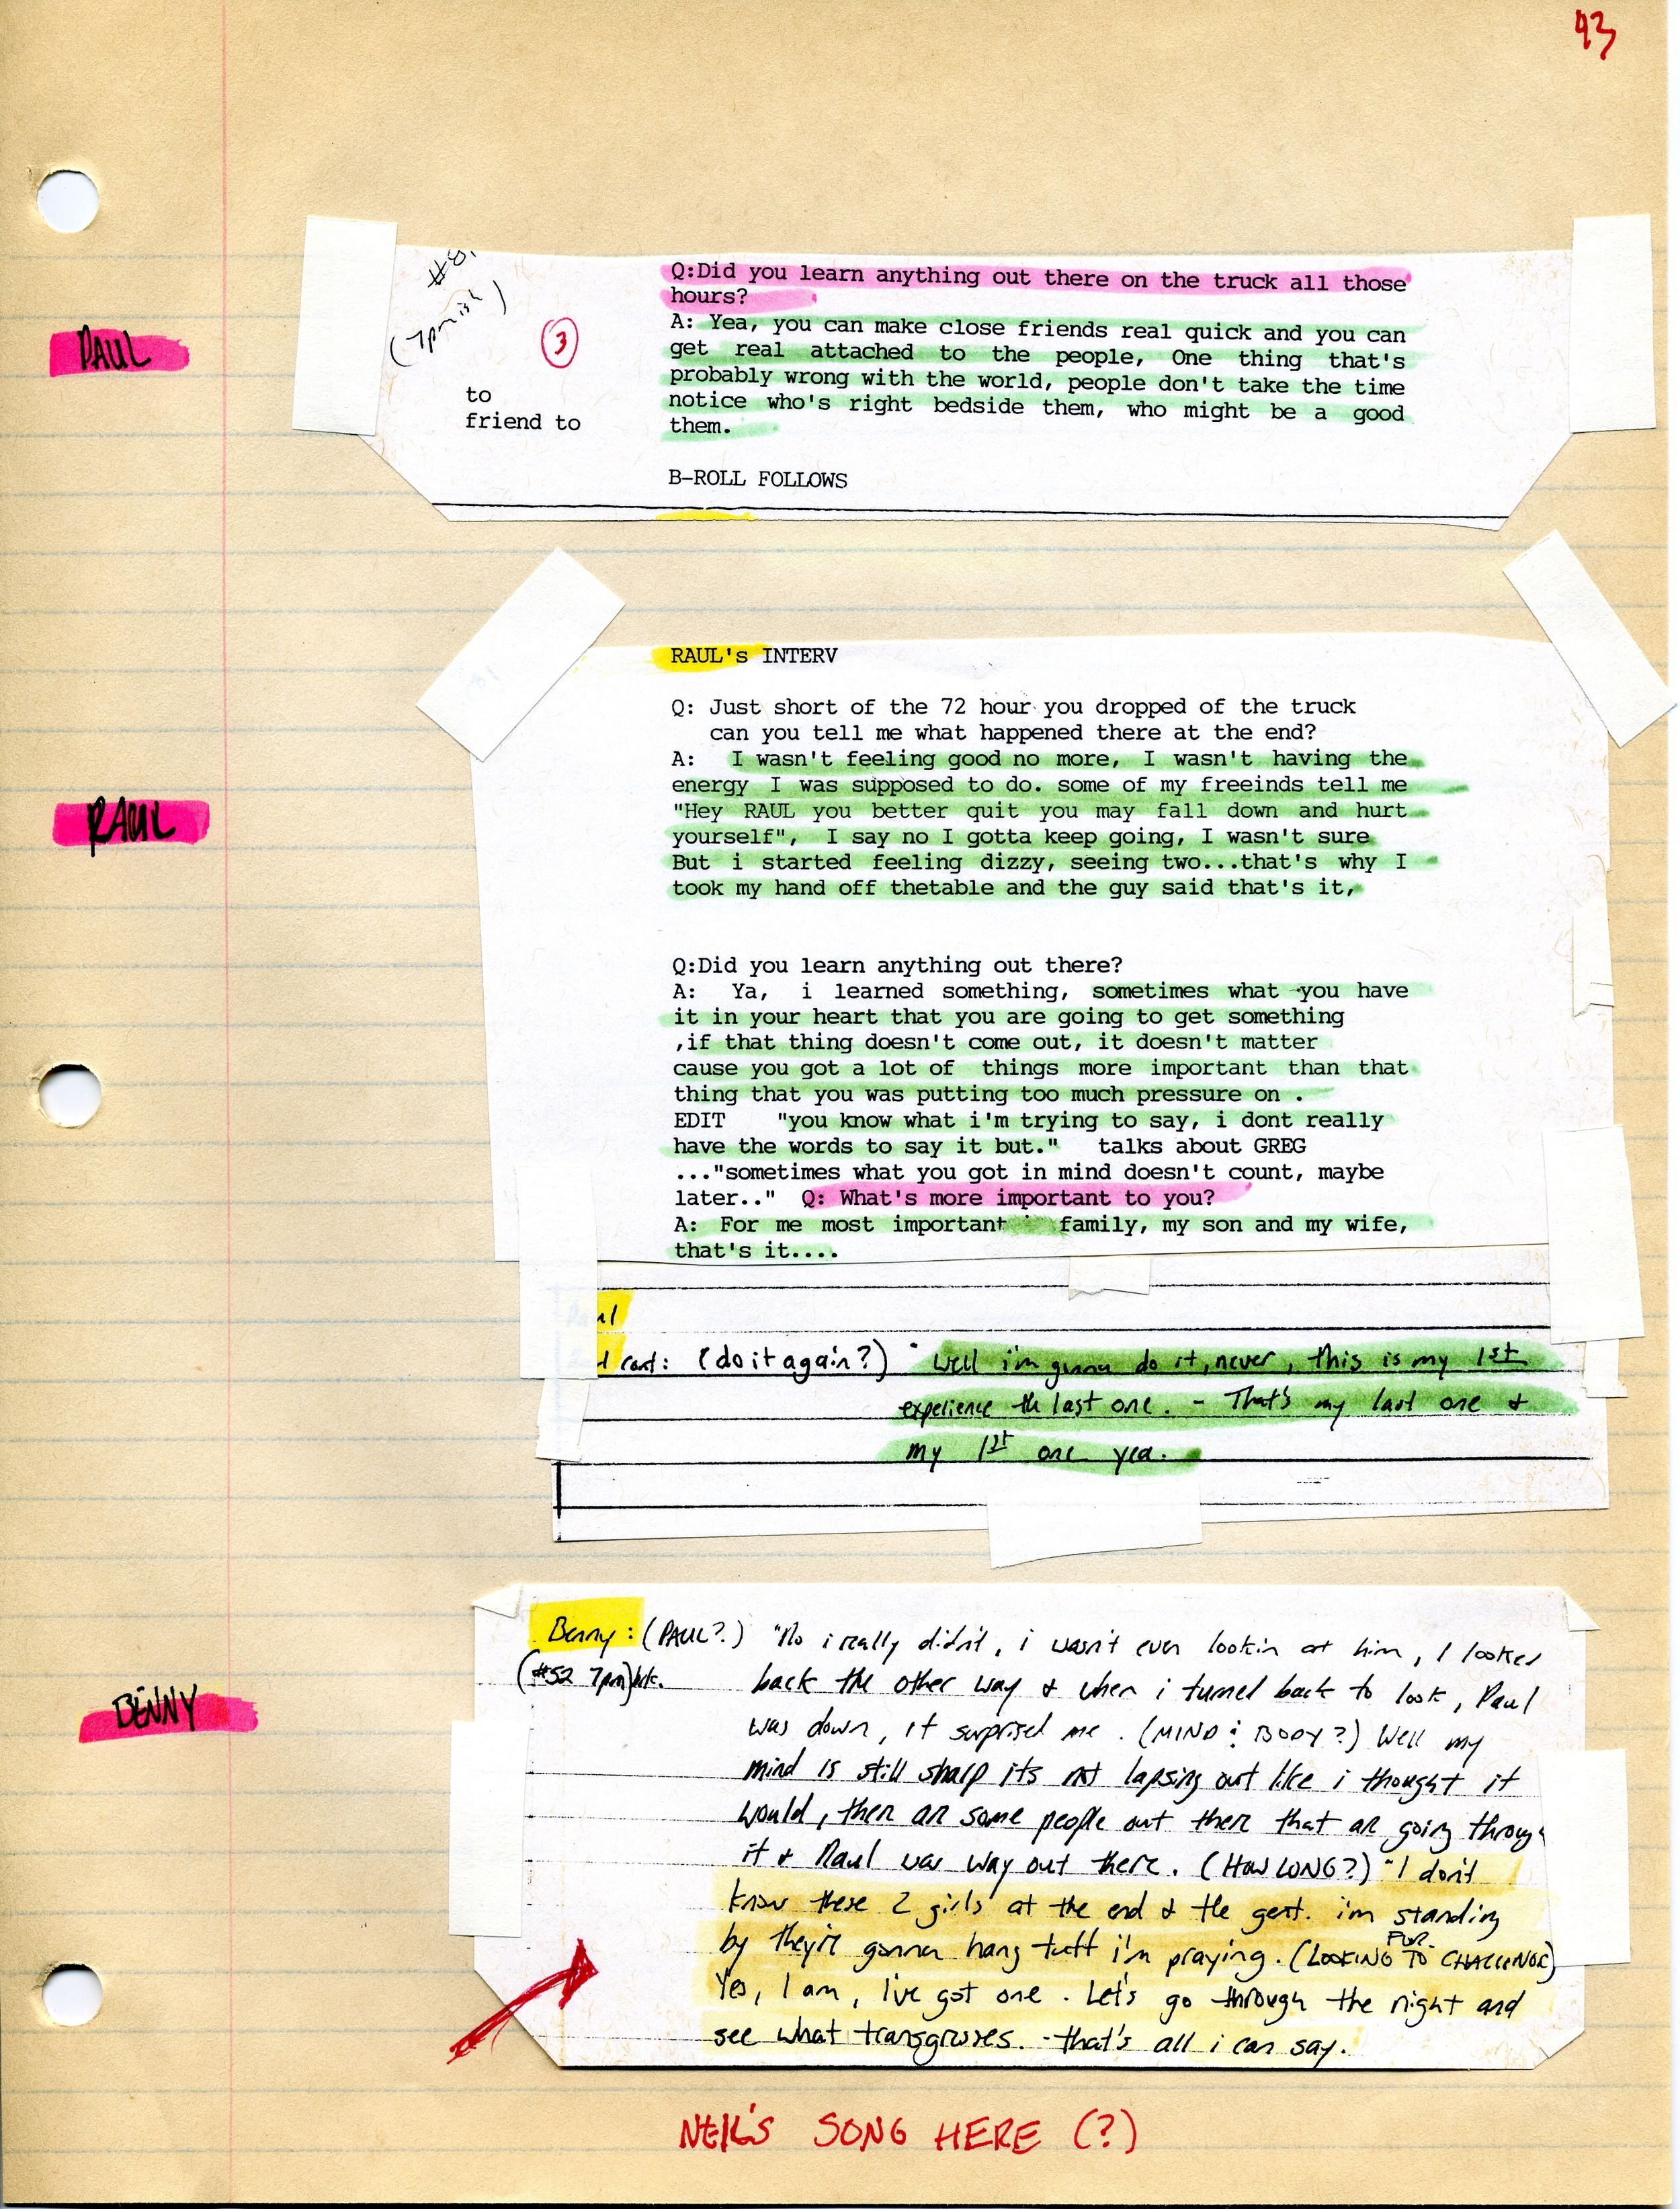 93
#8,
(7pm ish)
3
PAUL
Q:Did you learn anything out there on the truck all those
hours?
A: Yea, you can make close friends real quick and you can
get real attached to the people, One thing that's
probably wrong with the world, people don't take the time
to
notice who's right bedside them, who might be a good
friend to
them.
B-ROLL FOLLOWS
RAUL's INTERV
Q: Just short of the 72 hour you dropped of the truck
can you tell me what happened there at the end?
RAUL
A: I wasn't feeling good no more, I wasn't having the
energy I was supposed to do. some of my freeinds tell me
"Hey RAUL you better quit you may fall down and hurt
yourself", I say no I gotta keep going, I wasn't sure
But i started feeling dizzy, seeing two...that's why I
took my hand off thetable and the guy said that's it,
Q:Did you learn anything out there?
A: Ya, i learned something, sometimes what you have
it in your heart that you are going to get something
,if that thing doesn't come out, it doesn't matter
cause you got a lot of things more important than that
thing that you was putting too much pressure on .
EDIT "you know what i'm trying to say, i dont really
have the words to say it but." talks about GREG
..."sometimes what you got in mind doesn't count, maybe
later.." Q: What's more important to you?
A: For me most important family, my son and my wife,
that's it....
ul
cont: (do it again?) " Well i'm gunna do it, never, this is my 1st
experience the last one. - That's my last one &
my 1st one yea.
Benny: (PAUL?) "No i really didn't, i wasn't even lookin at him, I looked
(#52 7pm) back the other way & when i turned back to look, Paul
BENNY
was down, it surprised me. (MIND & BODY?) Well my
mind is still sharp its not lapsing out like i thought it
would, ther are some people out there that are going through
it & Raul was way out there. (HOW LONG?) "I don't
know these 2 girls at the end & the gent. i'm standing
by they're gonna hang tuff i'm praying. (LOOKING FOR TO CHALLENGE)
Yes, I am, I've got one. Let's go through the night and
see what transgresses. - that's all i can say.
NEIL'S SONG HERE (?)